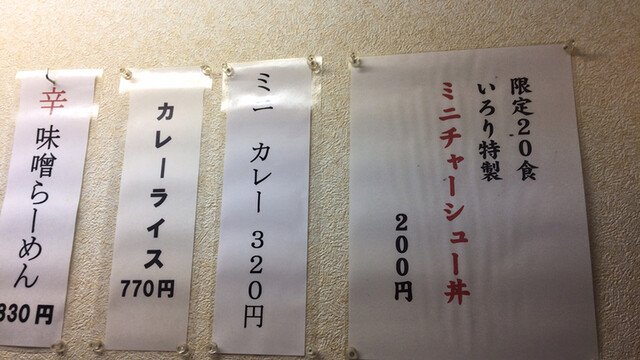 限定20食
いろり特製
ミニチャーシュー丼
200円
ミニ カレー 320円
カレーライス
770円
辛味噌らーめん
330円